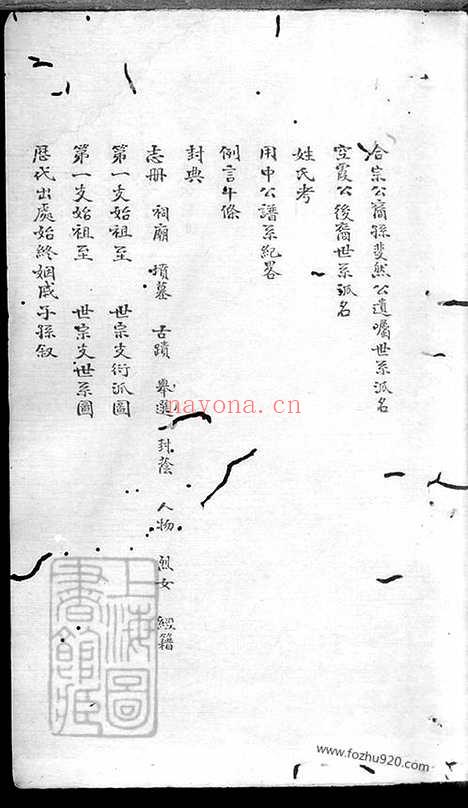 合宗公裔孫斐然公遺囑世系派名
空霞公後裔世系派名
姓氏考
用中公譜系紀畧
例言十條
封典
志册 祠廟 墳墓 古蹟 舉選 封蔭 人物 烈女 經籍
第一支始祖至 世宗支衍派圖
第一支始祖至 世宗支世系圖
歷代出處始終姻戚子孫叙
nayona.cn
上海圖書館藏
www.fozhu920.com